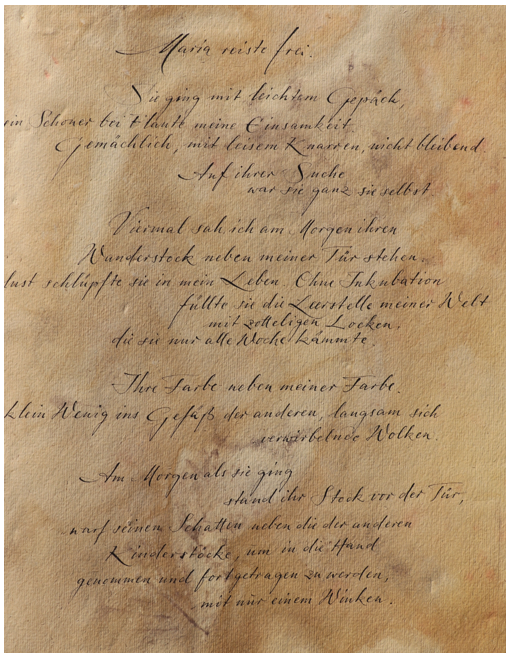 Maria reiste frei.
Sie ging mit leichtem Gepäck,
ein Schauer bei Flaute meine Einsamkeit.
Gemächlich, mit leisem Knarren, nicht bleibend
Auf ihrer Suche
war sie ganz sie selbst
Viermal sah ich am Morgen ihren
Wanderstock neben meiner Tür stehen.
lust schlüpfte sie in mein Leben. Ohne Inkubation
füllte sie die Leerstelle meiner Welt
mit zotteligen Locken,
die sie nur alle Woche kämmte.
Ihre Farbe neben meiner Farbe.
klein Wenig ins Gefäß der anderen, langsam sich
verwirbelnde Wolken.
Am Morgen als sie ging
stand ihr Stock vor der Tür,
warf seinen Schatten neben die der anderen
Kinderstöcke, um in die Hand
genommen und fortgetragen zu werden,
mit nur einem Winken.